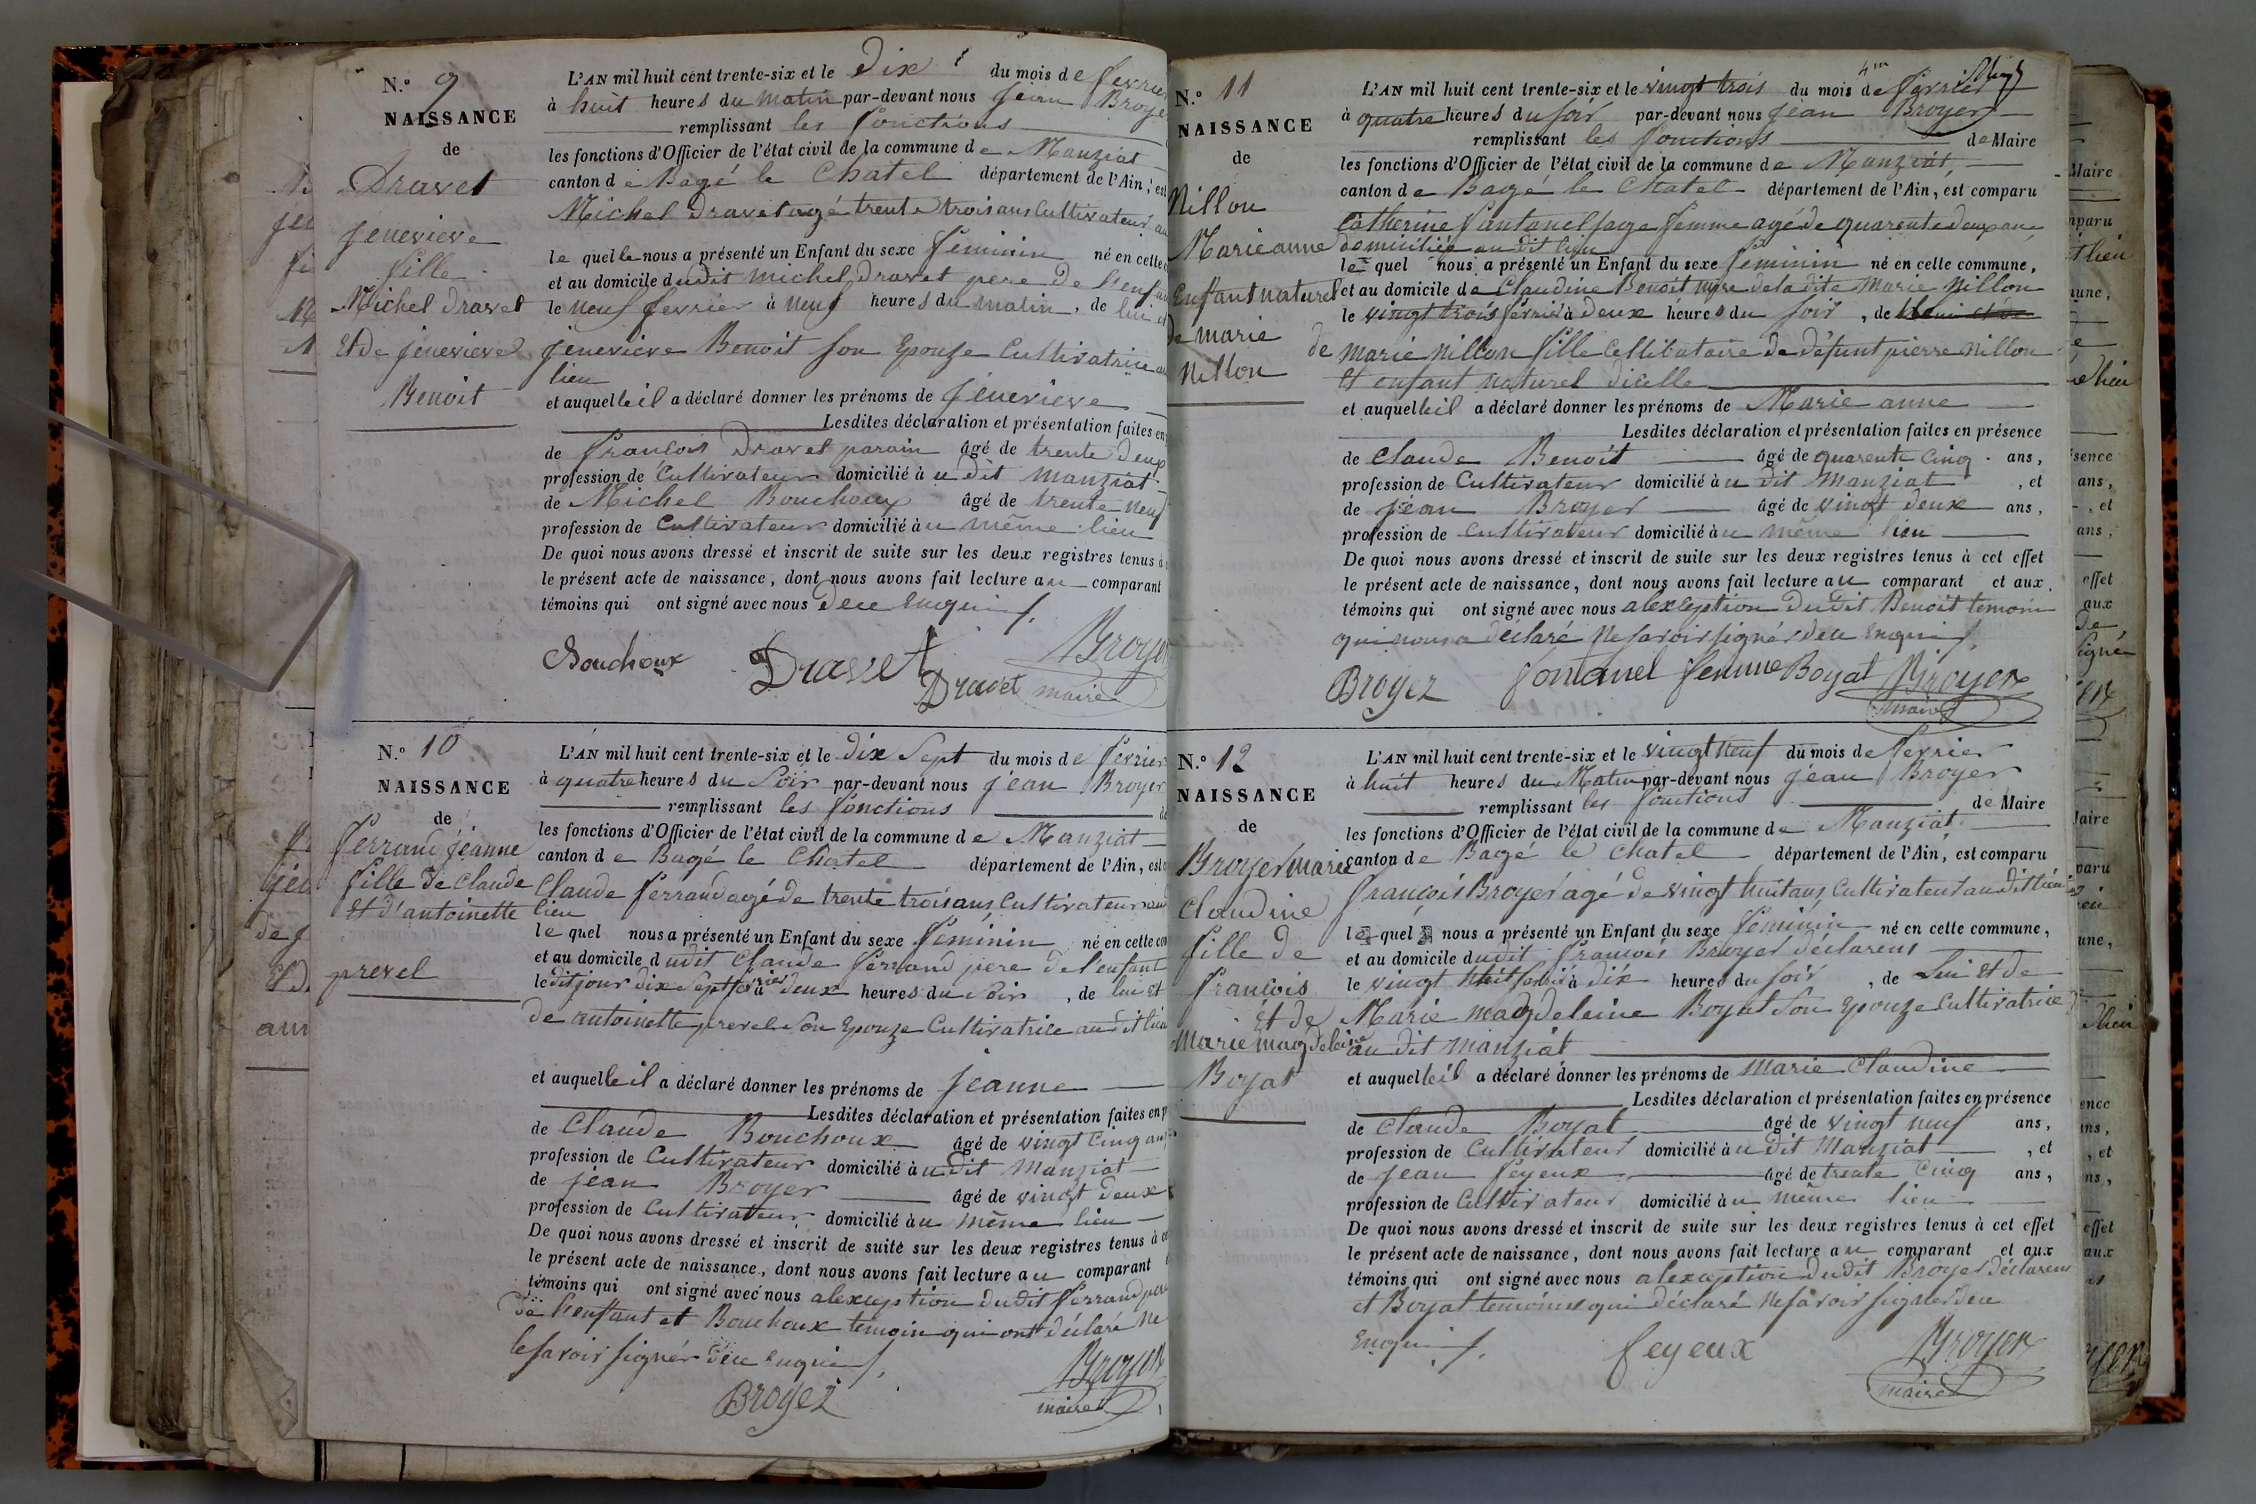 N.º 9
NAISSANCE
de
Dravet
jenevieve
fille
Michel dravet
Et de jenevieve
Benoit
L'AN mil huit cent trente-six et le Dix du mois de fevrier
à huit heures du matin par-devant nous jean Broye
remplissant les fonctions
les fonctions d'Officier de l'état civil de la commune de Manziat
canton de Bagé le Chatel département de l'Ain, est
Michel Dravet agé trente trois ans Cultivateur au
le quel le nous a présenté un Enfant du sexe feminin né en cette
et au domicile dudit michel dravet pere de l'enfan
le neuf fevrier à neuf heures du matin, de lui et
jenevieve Benoit son Epouse Cultivatrice au
lieu
et auquel le il a déclaré donner les prénoms de jenevieve
Lesdites déclaration et présentation faites en
de francois Dravet parain âgé de trente deux
profession de Cultivateur domicilié à u dit manziat
de Michel Bouchoux âgé de trente neuf
profession de Cultivateur domicilié à u même lieu
De quoi nous avons dressé et inscrit de suite sur les deux registres tenus à
le présent acte de naissance, dont nous avons fait lecture au comparant
témoins qui ont signé avec nous dece enquis
Bouchoux Dravet Broyer
Dravet maire
N.º 10
NAISSANCE
de
ferrand jeanne
fille de Claude
et d'antoinette
prevel
L'AN mil huit cent trente-six et le dix Sept du mois de fevrier
à quatre heures du Soir par-devant nous jean Broyer
remplissant les fonctions de
les fonctions d'Officier de l'état civil de la commune de Manziat
canton de Bagé le Chatel département de l'Ain, est
Claude ferrand agé de trente trois ans Cultivateur aud
lieu
le quel nous a présenté un Enfant du sexe feminin né en cette com
et au domicile dudit Claude ferrand pere de l'enfant
le dit jour dix Sept fevrier à deux heures du Soir, de lui et
de antoinette prevel Son Epouze Cultivatrice au dit lieu
et auquel le il a déclaré donner les prénoms de jeanne
Lesdites déclaration et présentation faites en p
de Claude Bouchoux âgé de vingt Cinq ans
profession de Cultivateur domicilié à u dit Manziat
de jean Broyer âgé de vingt deux
profession de Cultivateur domicilié à u même lieu
De quoi nous avons dressé et inscrit de suite sur les deux registres tenus à ce
le présent acte de naissance, dont nous avons fait lecture au comparant
témoins qui ont signé avec nous alexception dudit ferrand pere
de l'enfant et Bouchoux témoin qui ont déclaré Ne
le savoir signér dece enquis
Broyer Broyer
maire
N.º 11
NAISSANCE
de
Nillon
Marie anne
Enfant naturel
de marie
Nillon
L'AN mil huit cent trente-six et le vingt trois du mois de fevrier
à quatre heures du soir par-devant nous jean Broyer
remplissant les fonctions de Maire
les fonctions d'Officier de l'état civil de la commune de Manziat,
canton de Bagé le Chatel département de l'Ain, est comparu
Catherine fantanel sage femme agé de quarente deux ans
domiciliée au dit lieu
le quel nous a présenté un Enfant du sexe feminin né en cette commune,
et au domicile de Claudine Benoit mere de la dite Marie Nillon
le vingt trois fevrier à deux heures du soir, de
de marie nillon fille Cellibataire de défunt pierre nillon
et enfant naturel dicelle
et auquel le il a déclaré donner les prénoms de Marie anne
Lesdites déclaration et présentation faites en présence
de Claude Benoit âgé de quarente Cinq ans,
profession de Cultivateur domicilié à u dit Manziat, et
de jean Broyer âgé de vingt deux ans,
profession de Cultivateur domicilié à u même lieu
De quoi nous avons dressé et inscrit de suite sur les deux registres tenus à cet effet
le présent acte de naissance, dont nous avons fait lecture au comparant et aux
témoins qui ont signé avec nous alexception dudit Benoit temoin
qui nous a déclaré ne savoir signér dece enquis
Broyer fontanel femme Boyat Broyer
maire
N.º 12
NAISSANCE
de
Broyer marie
Claudine
fille de
francois
Et de
Marie magdeleine
Boyat
L'AN mil huit cent trente-six et le vingt neuf du mois de fevrier
à huit heures du Matin par-devant nous jean Broyer
remplissant les fonctions de Maire
les fonctions d'Officier de l'état civil de la commune de Manziat
canton de Bagé le chatel département de l'Ain, est comparu
françois Broyer agé de vingt huit ans Cultivateur au dit lieu
le quel nous a présenté un Enfant du sexe feminin né en cette commune,
et au domicile dudit francois Broyer déclarent
le vingt huit fevrier à dix heures du soir, de Lui et de
Marie magdeleine Boyat Son Epouze Cultivatrice
au dit manziat
et auquel le il a déclaré donner les prénoms de marie Claudine
Lesdites déclaration et présentation faites en présence
de Claude Boyat âgé de vingt neuf ans,
profession de Cultivateur domicilié à u dit Manziat, et
de jean feyeux âgé de trente Cinq ans,
profession de Cultivateur domicilié à u même lieu
De quoi nous avons dressé et inscrit de suite sur les deux registres tenus à cet effet
le présent acte de naissance, dont nous avons fait lecture au comparant et aux
témoins qui ont signé avec nous alexception dudit Broyer déclarent
et Boyat temoins qui déclaré ne savoir signer dece
Enquis
feyeux Broyer
maire